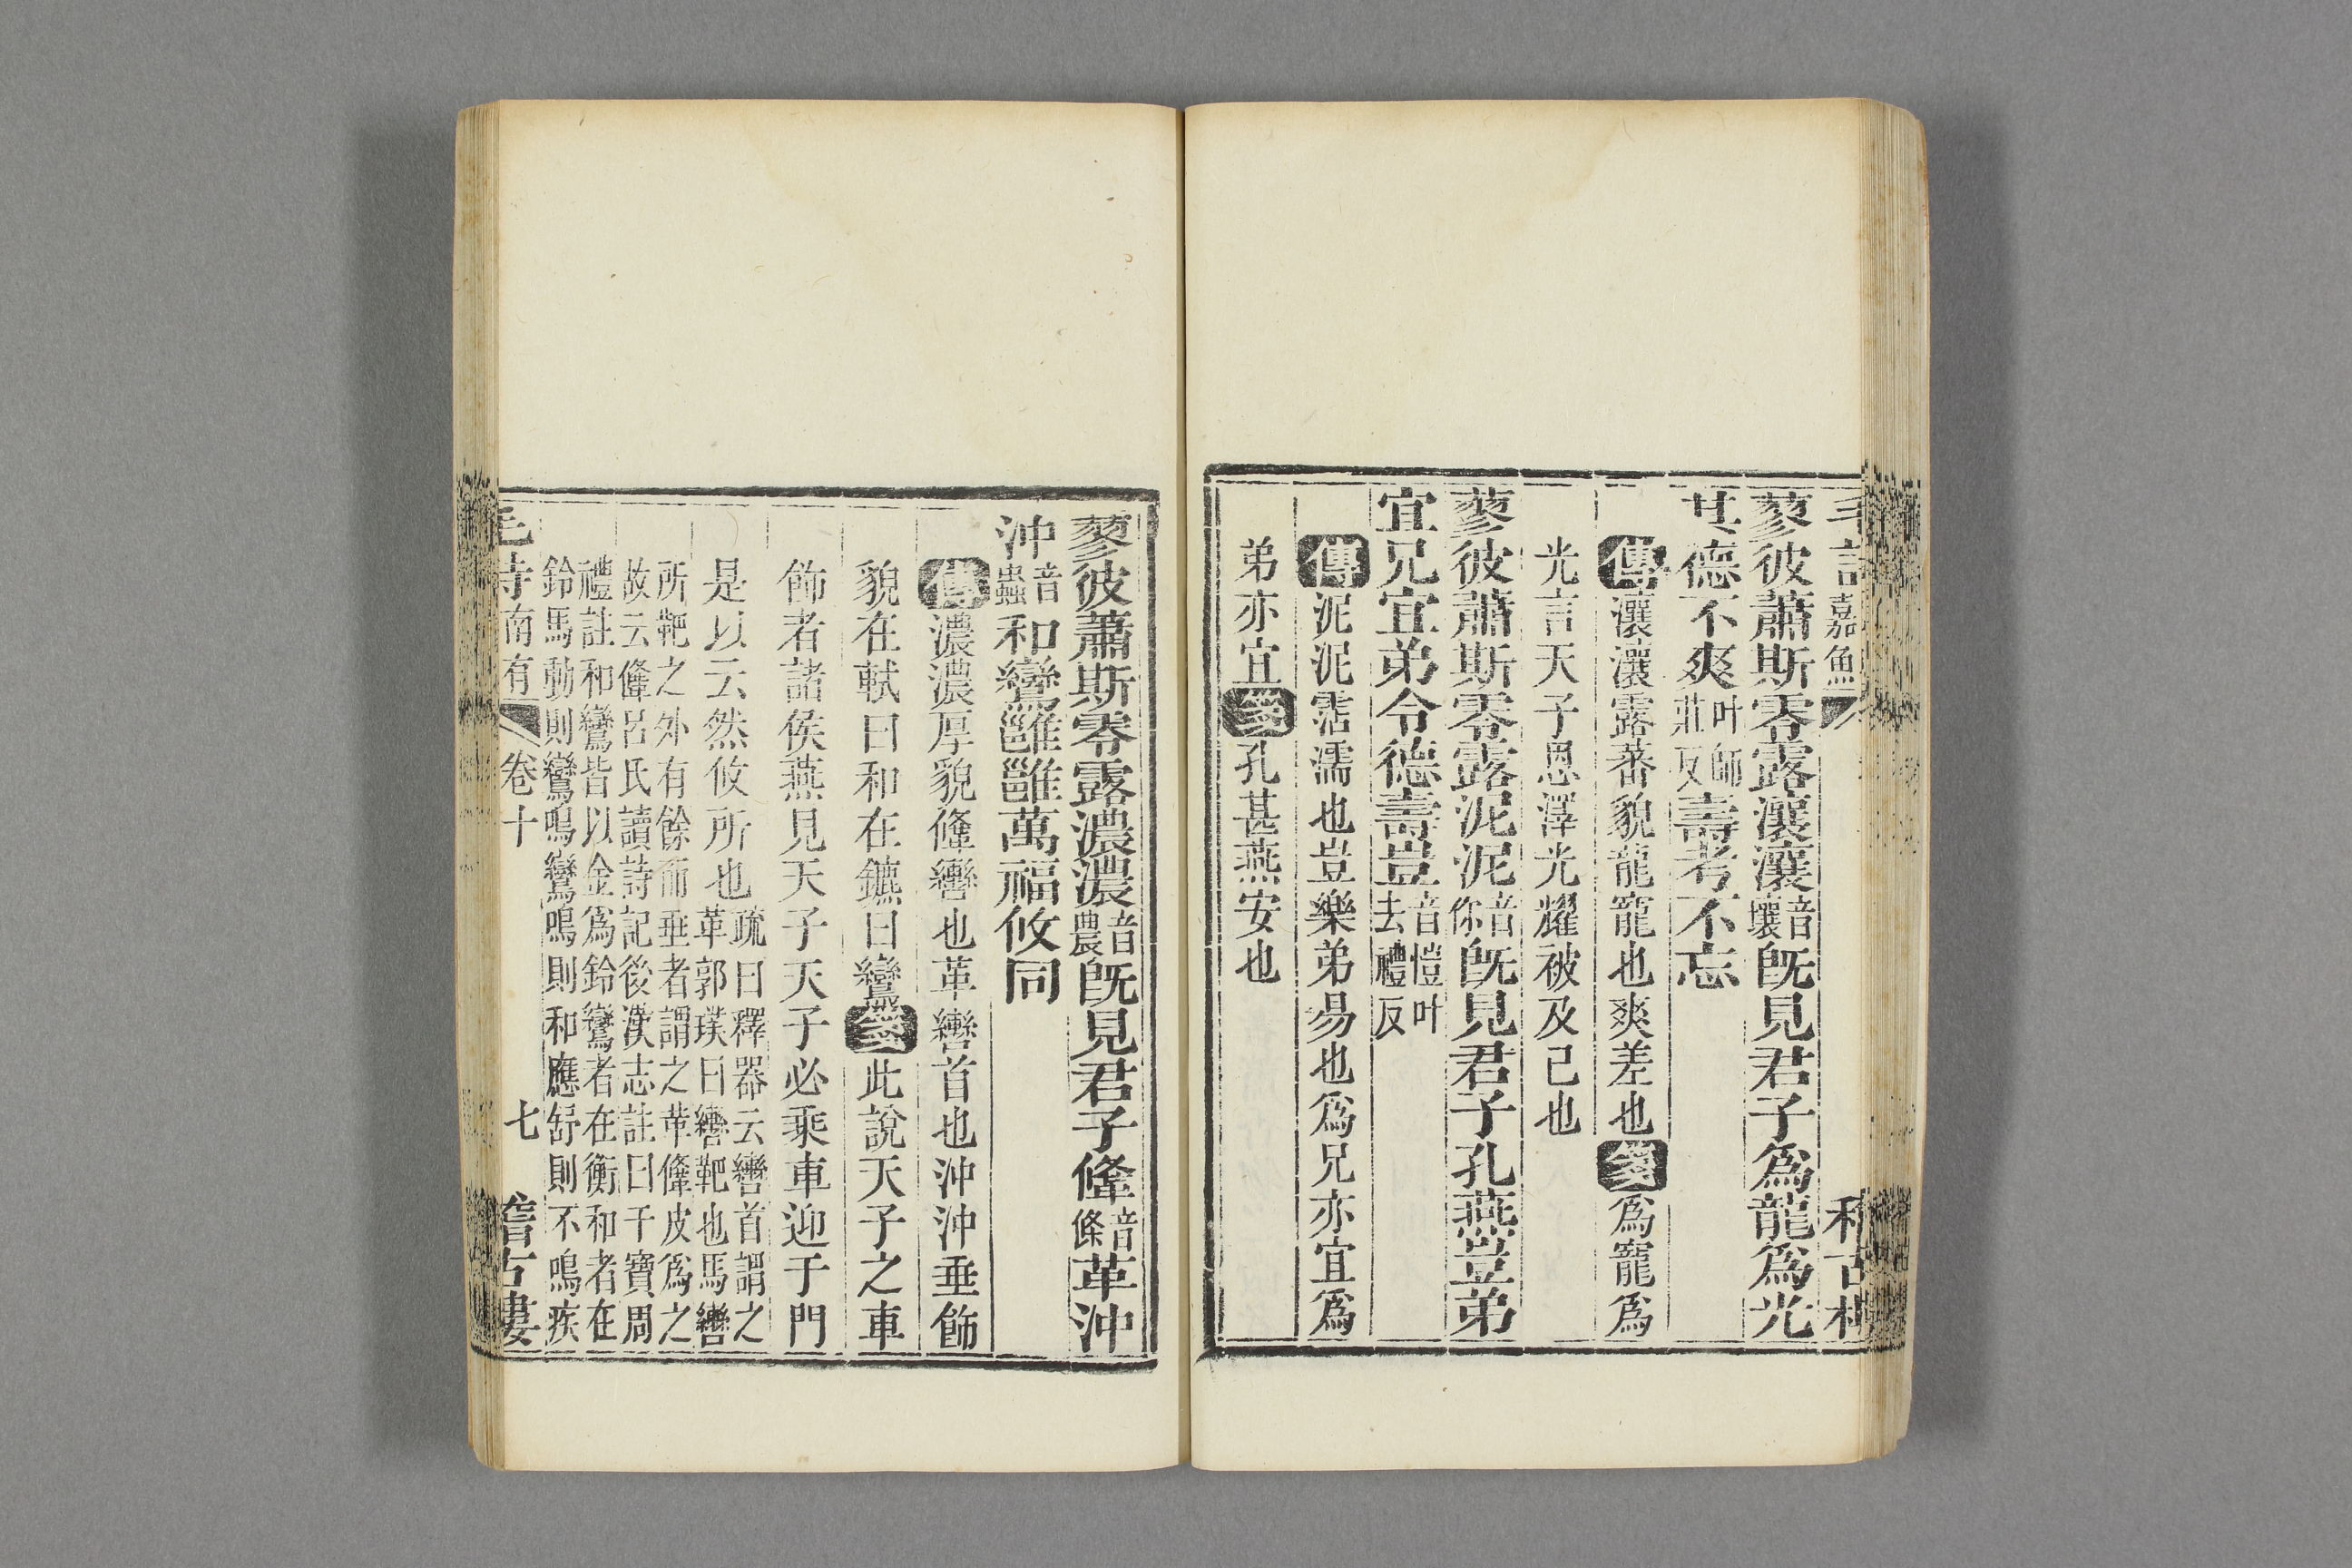 毛詩嘉魚
蓼彼蕭斯零露瀼瀼音壤旣見君子爲龍爲光
其德不爽叶師莊反壽考不忘
傳瀼瀼露蕃貌龍寵也爽差也箋爲寵爲
光言天子恩澤光耀被及己也
蓼彼蕭斯零露泥泥音你旣見君子孔燕豈弟
宜兄宜弟令德壽豈音愷叶去禮反
傳泥泥霑濡也豈樂弟易也爲兄亦宜爲
弟亦宜箋孔甚燕安也
蓼彼蕭斯零露濃濃音農旣見君子鞗音條革沖
沖音蟲和鸞雝雝萬福攸同
傳濃濃厚貌鞗轡也革轡首也沖沖垂飾
貌在軾曰和在鑣曰鸞箋此說天子之車
飾者諸侯燕見天子天子必乘車迎于門
是以云然攸所也疏曰釋器云轡首謂之
革郭璞曰轡靶也馬轡
所靶之外有餘而垂者謂之革鞗皮爲之
故云鞗呂氏讀詩記後漢志註曰干寶周
禮註和鸞皆以金爲鈴鸞者在衡和者在
鈴馬動則鸞鳴鸞鳴則和應舒則不鳴疾
毛詩南有 卷十 七 稽古樓